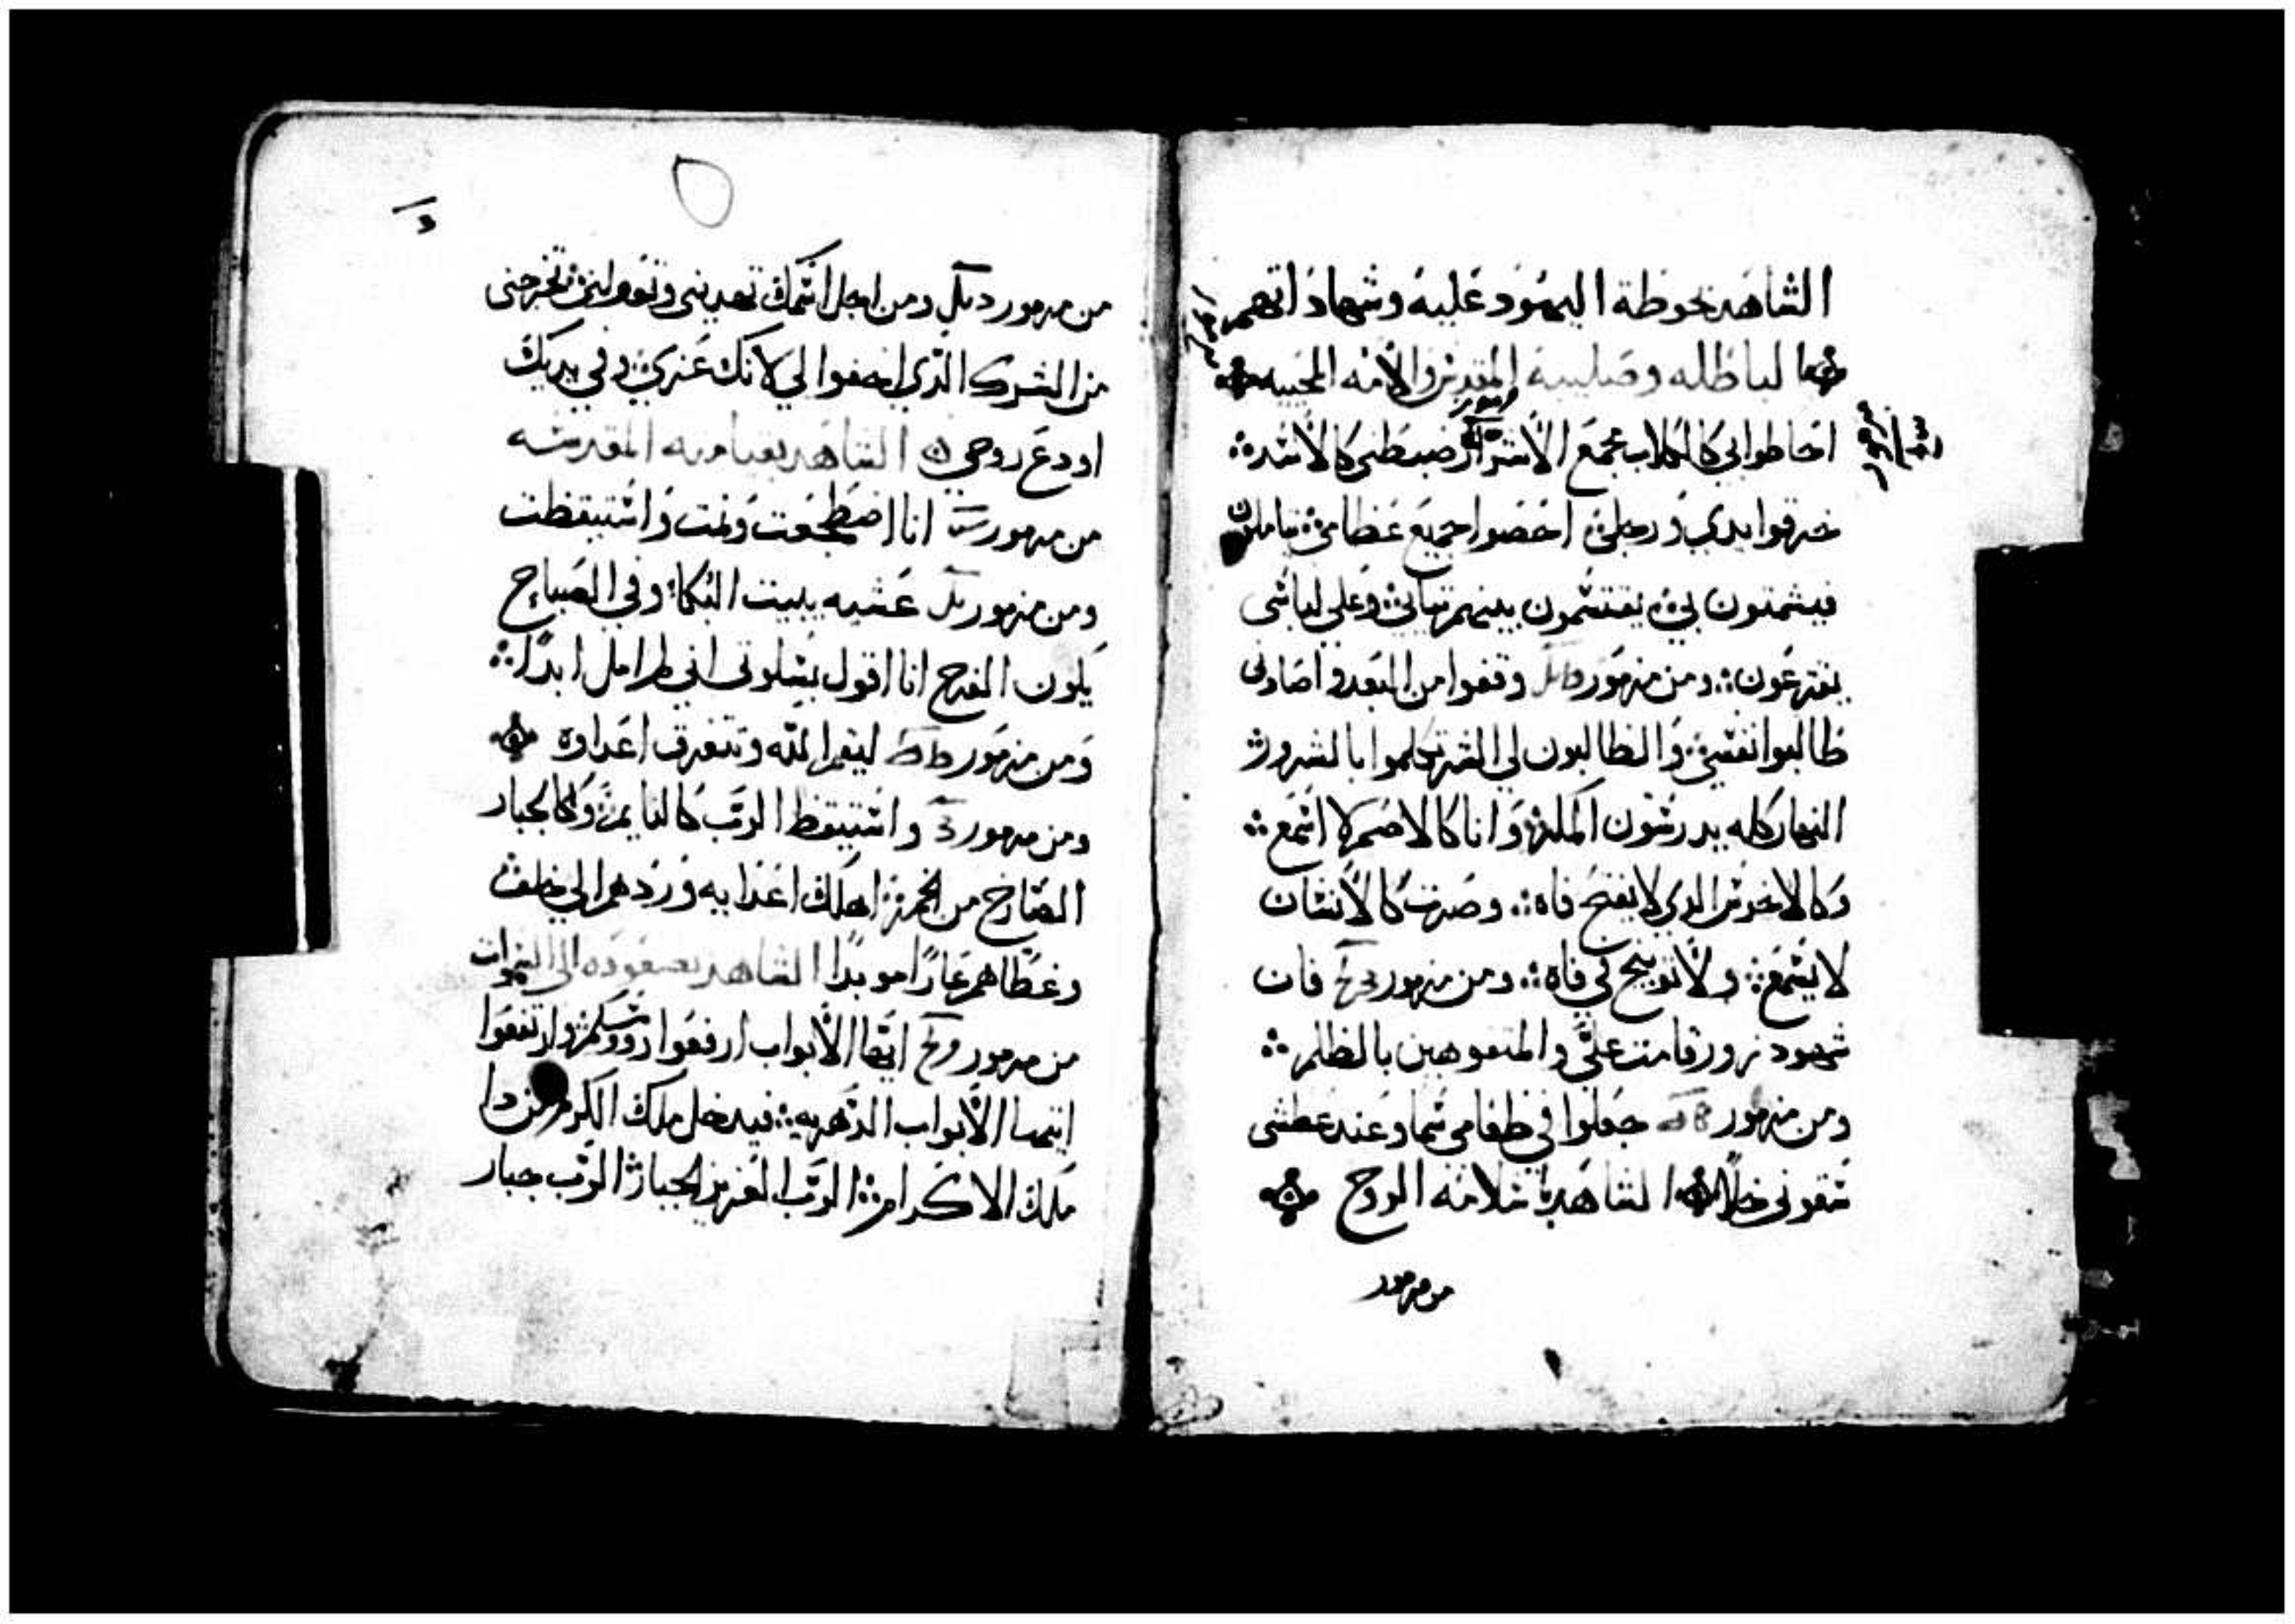 الشاهد بحوطة اليهود عليه وشهاداتهم
الباطله وصليبه المقدس والامه المحييه
احاطوا بي كالكلاب مجمع الاشرار ضبطني كالاسد
خرقوا يدي ورجلي احصوا جميع عظامي تاملون
فيشمتون بي يقتسمون بينهم ثيابي وعلي لباسي
يقترعون ومن مزمور وقفوا من البعد و اصادني
طالبوا نفسي والطالبون لي الشر تكلموا بالشرور
النهار كله يدرسون المكر وانا كالاصم لا اسمع
وكالاخرس الدي لا يفتح فاه وصرت كالانسان
لا يسمع ولا توبيخ في فاه ومن مزمور فان
شهود زور قامت علي والمتفوهين بالظلم
ومن مزمور جعلوا في طعامي سما وعند عطشي
سقوني خلا الشاهد باسلامه الروح
من مزمور
من مزمور ومن اجل اسمك تهديني وتعولني تخرجني
من الشرك الذي اخفوا لي لانك عزي وفي يديك
اودع روحي الشاهد بقيامته المقدسه
من مزمور انا اضطجعت ونمت واستيقظت
ومن مزمور عشيه يبيت البكا وفي الصباح
يكون الفرح انا اقول بسلوتي اني لم امل ابدا
ومن مزمور ليقم الله وتتفرق اعداوه
ومن مزمور واستيقظ الرب كالنايم وكالجبار
الصارخ من الخمر اهلك اعدايه وردهم الي خلف
وغطاهم عارا موبدا الشاهد بصعوده الي السموات
من مزمور ايها الابواب ارفعوا رووسكم وارتفعوا
ايتها الابواب الدهريه فيدخل ملك الكرم من دا
ملك الاكرام الرب العزيز الجبار الرب جبار